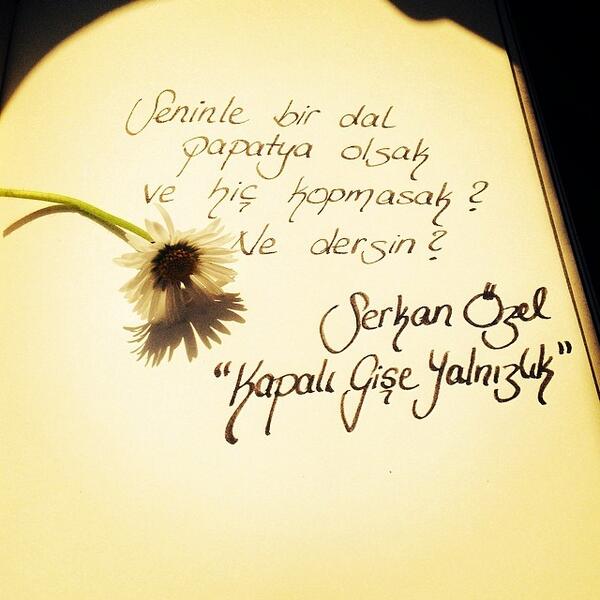 Seninle bir dal
papatya olsak
ve hiç kopmasak?
Ne dersin?
Serkan Özel
"Kapalı Gişe Yalnızlık"